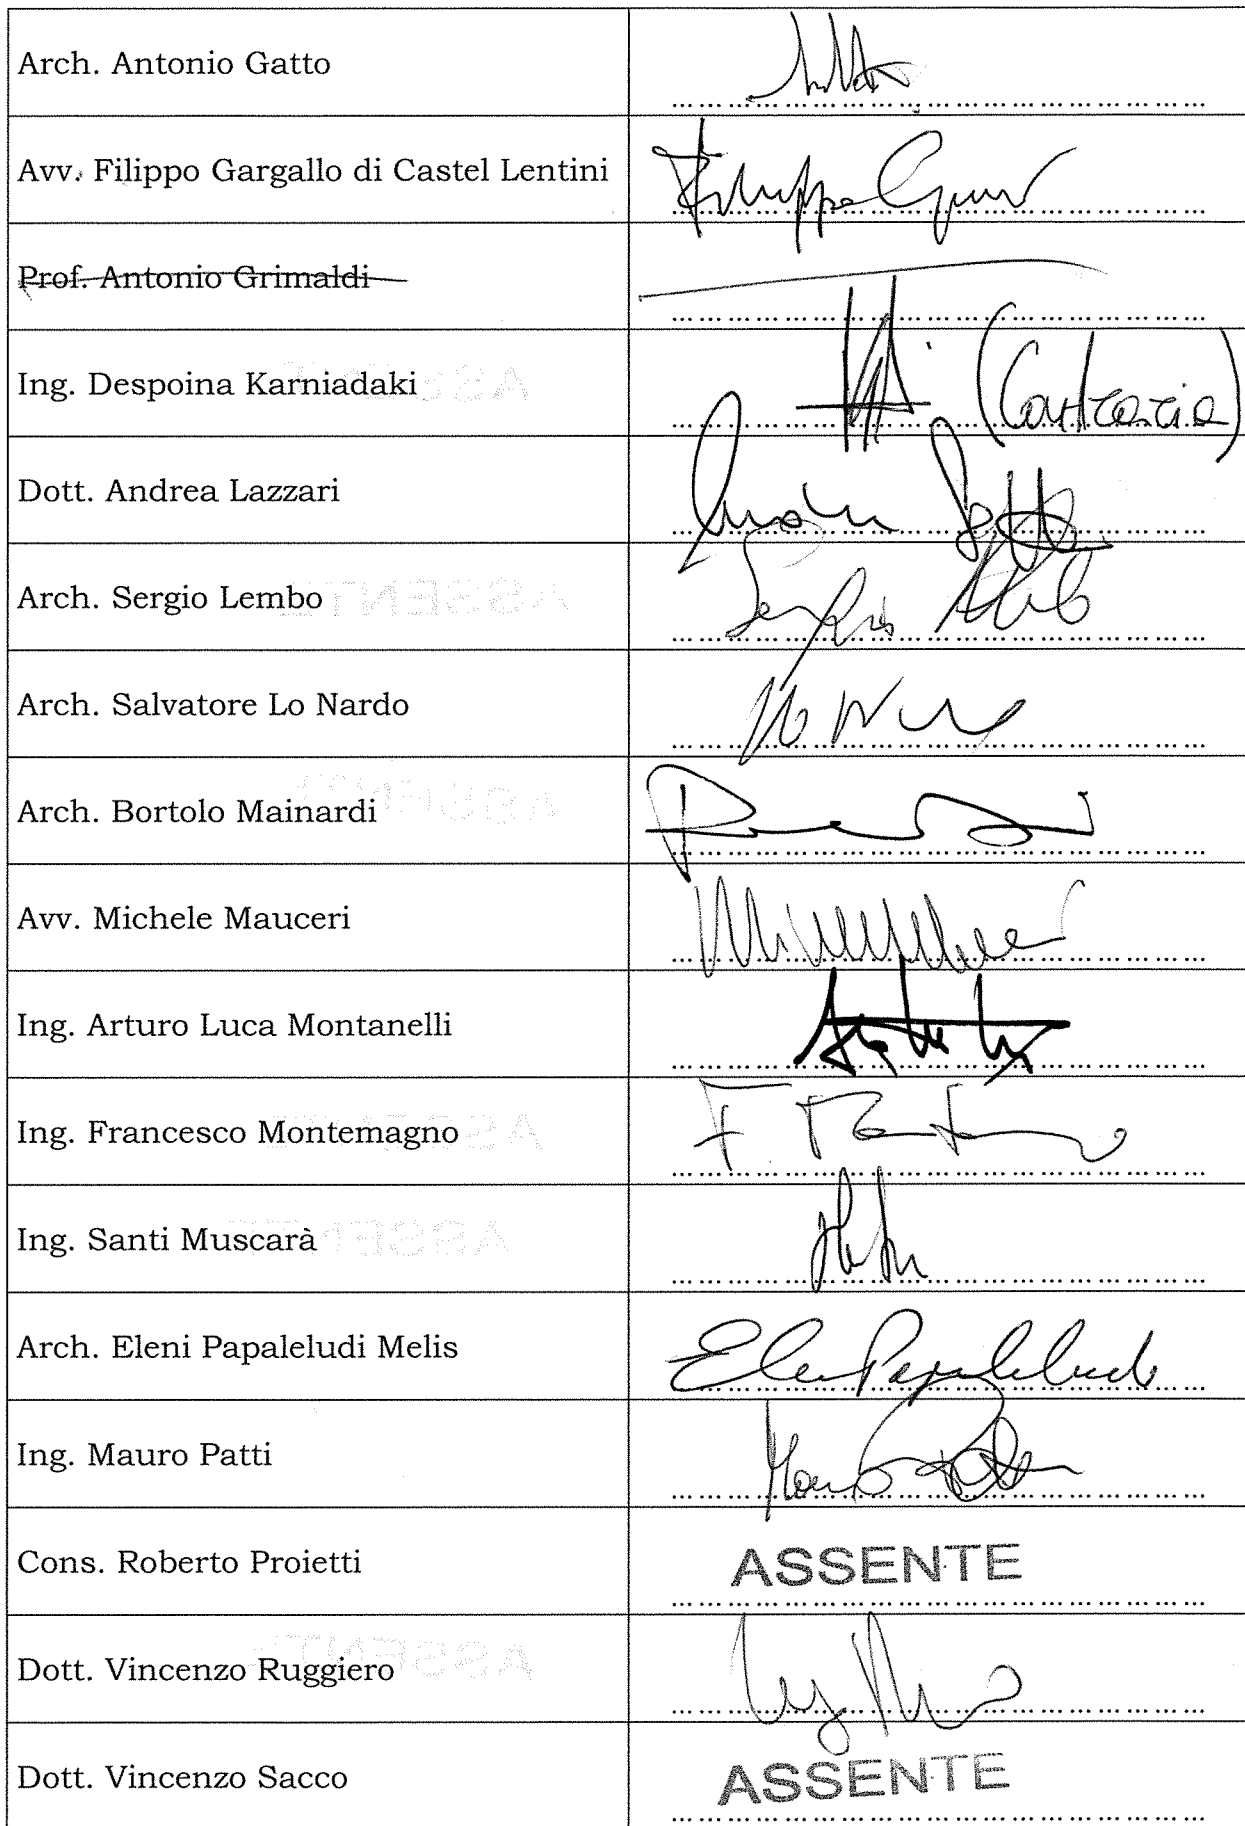 Arch. Antonio Gatto
Avv. Filippo Gargallo di Castel Lentini
Prof. Antonio Grimaldi
Ing. Despoina Karniadaki (Contraria)
Dott. Andrea Lazzari
Arch. Sergio Lembo
Arch. Salvatore Lo Nardo
Arch. Bortolo Mainardi
Avv. Michele Mauceri
Ing. Arturo Luca Montanelli
Ing. Francesco Montemagno
Ing. Santi Muscarà
Arch. Eleni Papaleludi Melis
Ing. Mauro Patti
Cons. Roberto Proietti ASSENTE
Dott. Vincenzo Ruggiero
Dott. Vincenzo Sacco ASSENTE